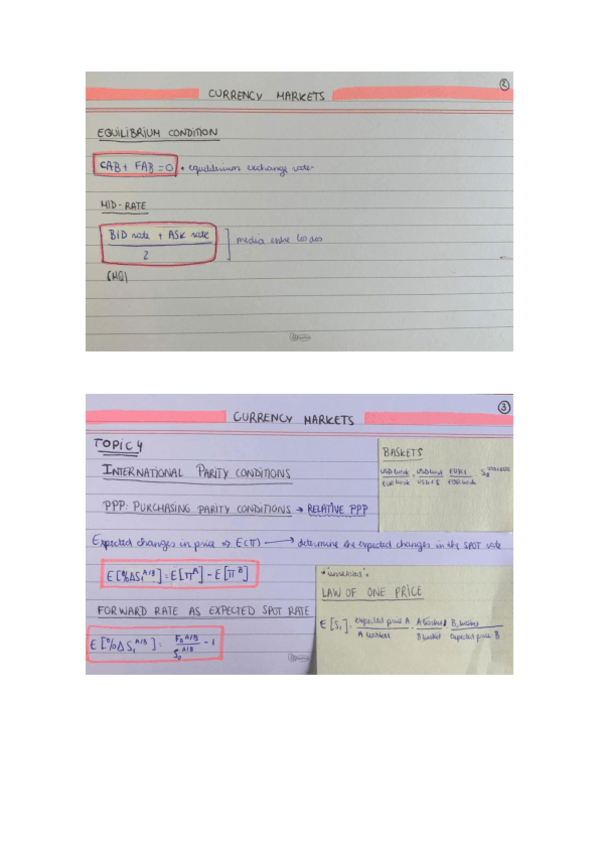 ②
CURRENCY MARKETS
EQUILIBRIUM CONDITION
CAB + FAB = 0 • equilibrium exchange rate
MID-RATE
BID rate + ASK rate
2
media entre los dos
(MQ)
③
CURRENCY MARKETS
TOPIC 4
INTERNATIONAL PARITY CONDITIONS
PPP: PURCHASING PARITY CONDITIONS → RELATIVE PPP
Expected changes in price ⇒ E(π) ⟶ determine the expected changes in the SPOT rate
E[%ΔS₁ᴬ/ᴮ] = E[πᴬ] - E[πᴮ]
FORWARD RATE AS EXPECTED SPOT RATE
E[%ΔS₁ᴬ/ᴮ] = F₀ᴬ/ᴮ / S₀ᴬ/ᴮ - 1
BASKETS
LAW OF ONE PRICE
E[S₁] = expected price A
expected price B